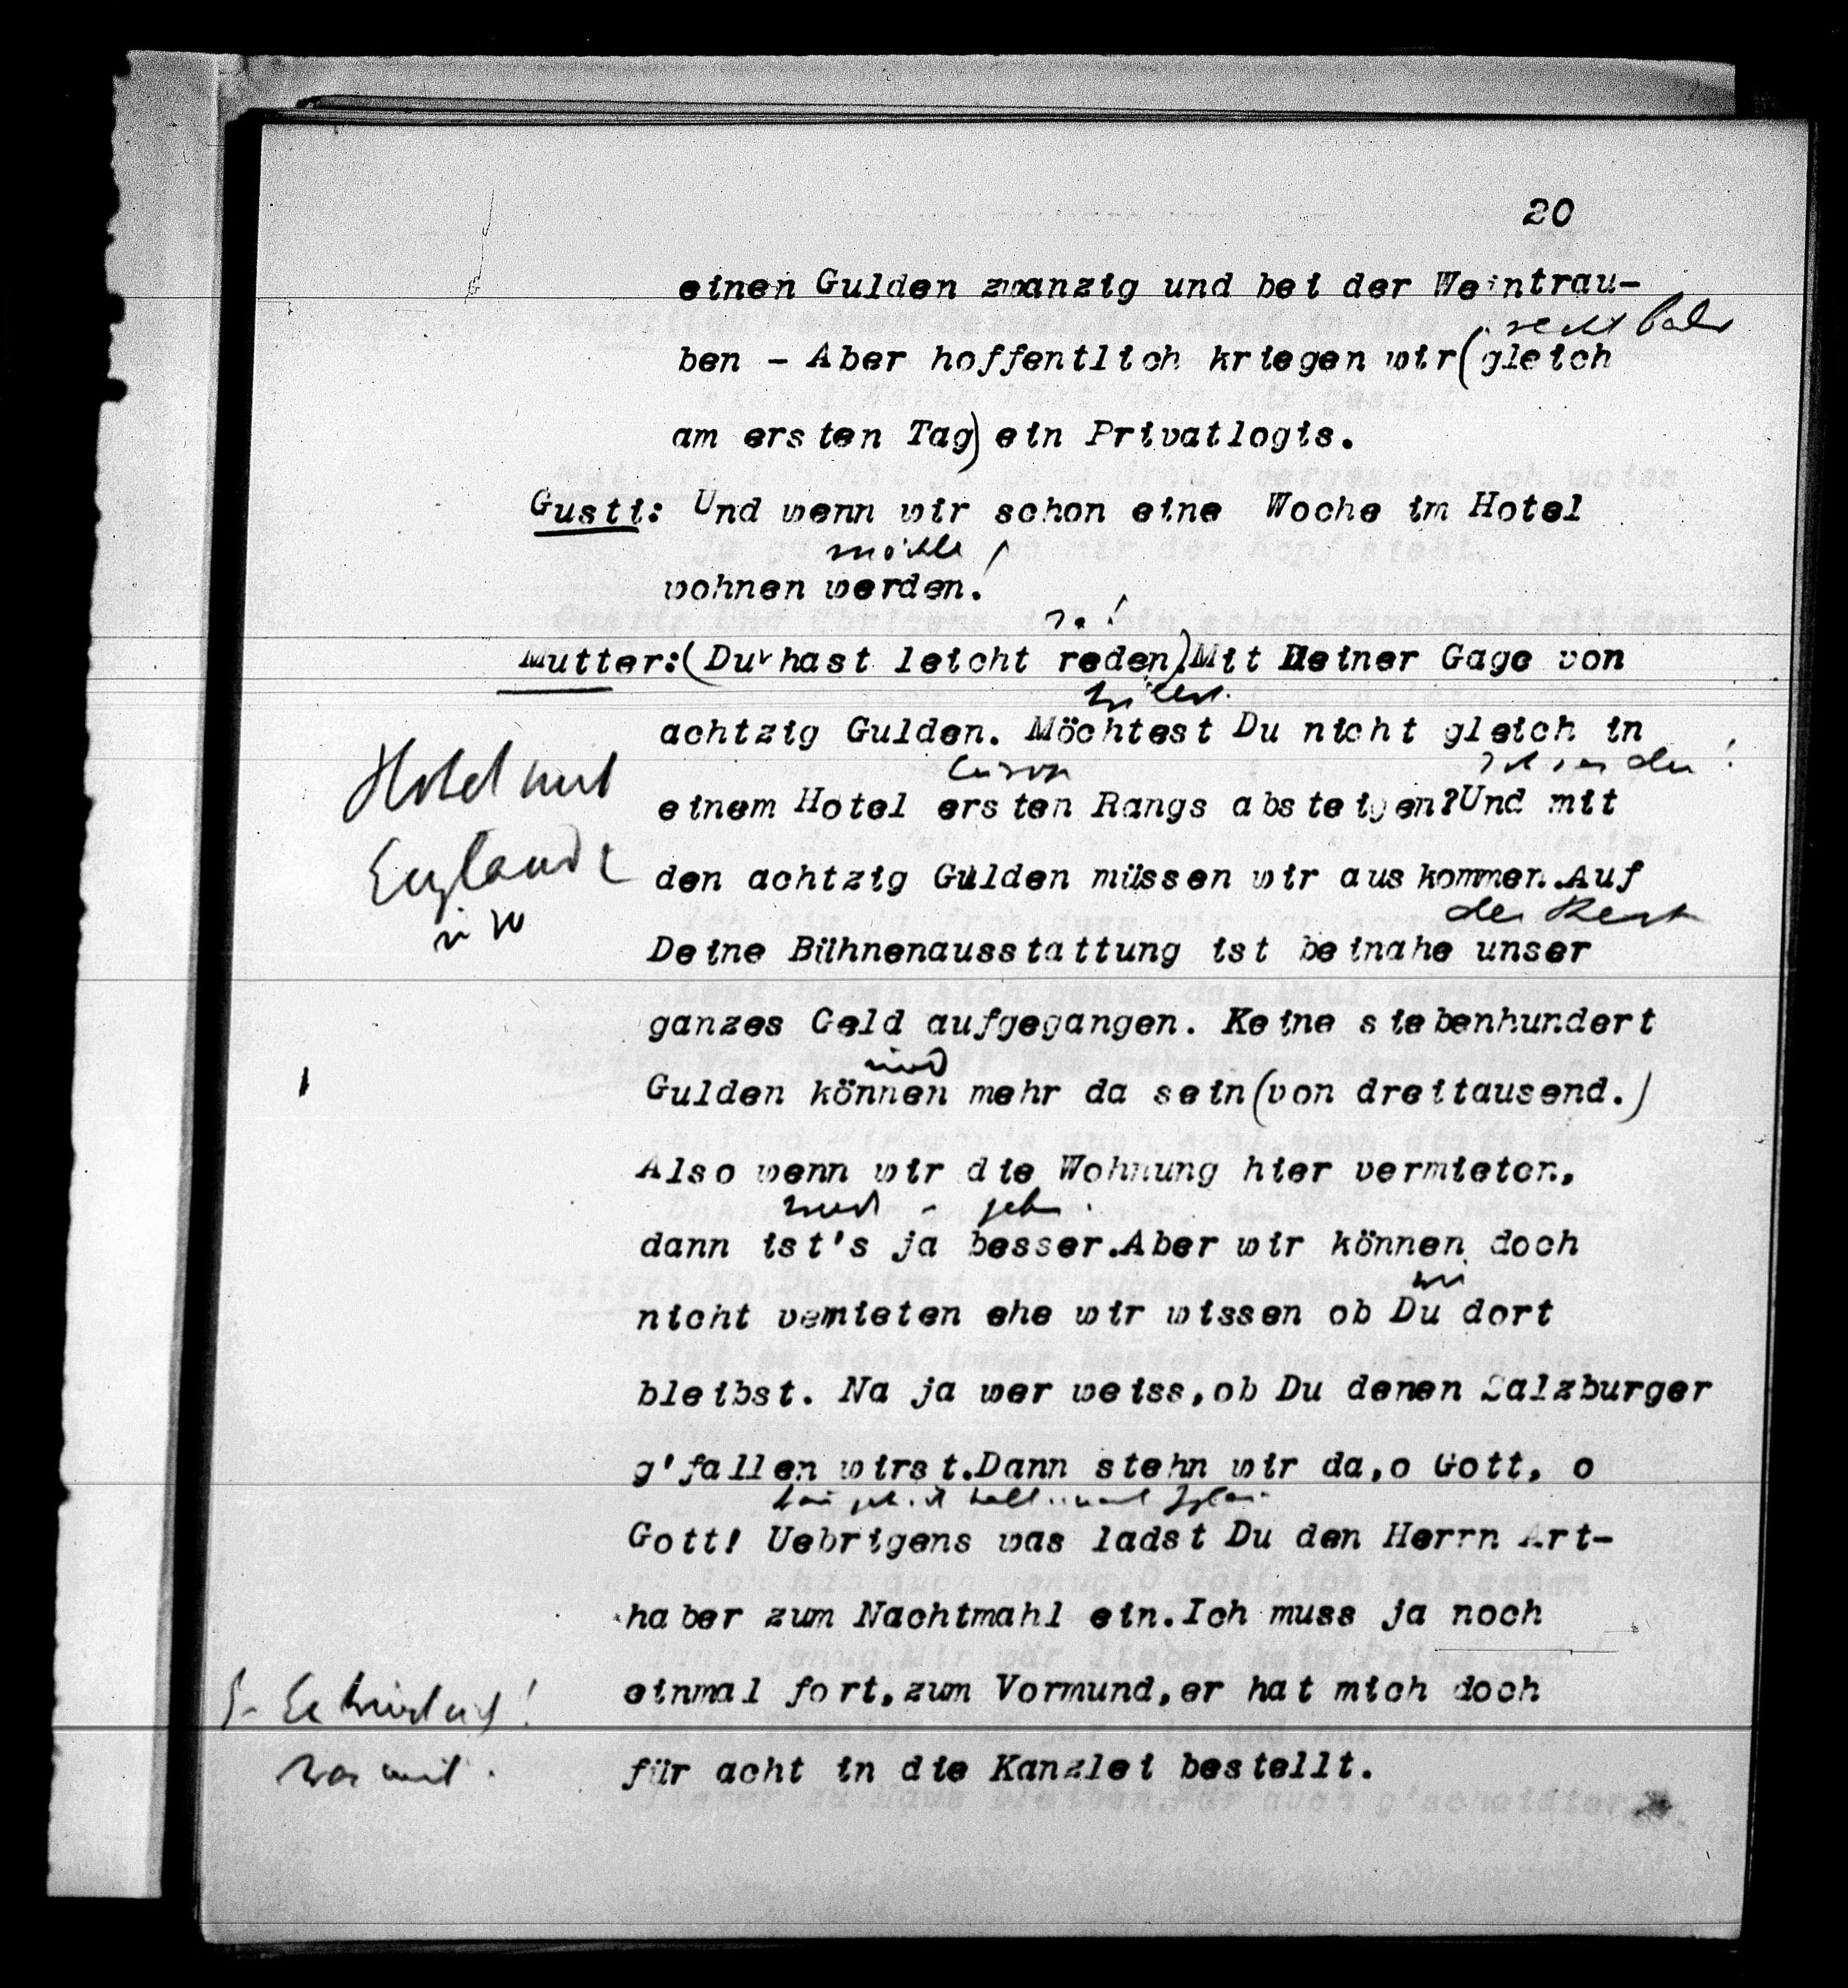 20
einen Gulden zwanzig und bei der Weintrau-
recht bald
ben - Aber hoffentlich kriegen wir (gleich
am ersten Tag) ein Privatlogis.
Gusti: Und wenn wir schon eine Woche im Hotel
möchte
wohnen werden!
Na!
Mutter: (Du hast leicht reden). Mit Deiner Gage von
achtzig Gulden. Möchtest Du nicht gleich in
Hotel und
einem Hotel ersten Rangs absteigen? Und mit
den achtzig Gulden müssen wir auskommen. Auf
der Rest
Deine Bühnenausstattung ist beinahe unser
ganzes Geld aufgegangen. Keine siebenhundert
Gulden können mehr da sein (von dreitausend.)
Also wenn wir die Wohnung hier vermieten,
dann ist's ja besser. Aber wir können doch
wir
nicht vemieten ehe wir wissen ob Du dort
bleibst. Na ja wer weiss, ob Du denen Salzburger
g'fallen wirst. Dann stehn wir da, o Gott, o
Gott! Uebrigens was ladst Du den Herrn Art-
haber zum Nachtmahl ein. Ich muss ja noch
einmal fort, zum Vormund, er hat mich doch
für acht in die Kanzlei bestellt.